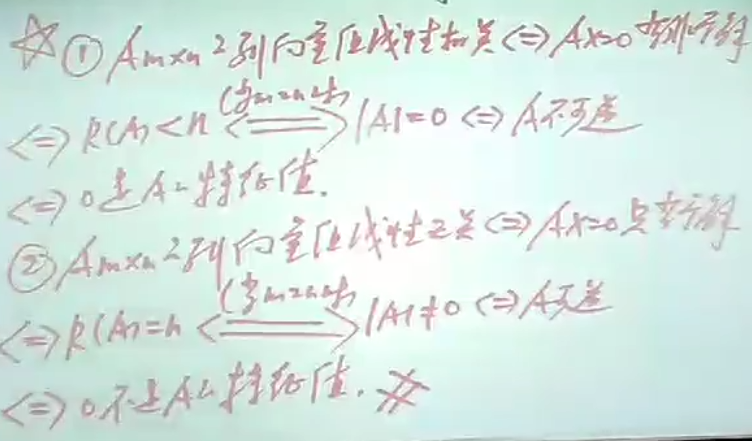 ☆① Am×n之列向量组线性相关⇔Ax=0有非零解
⇔R(A)<n ⇔(当m=n时) |A|=0⇔A不可逆
⇔0是A之特征值.
② Am×n之列向量组线性无关⇔Ax=0只有零解
⇔R(A)=n ⇔(当m=n时) |A|≠0⇔A可逆
⇔0不是A之特征值.